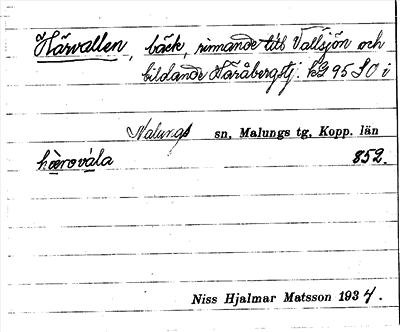 Härvallen, bäck, rinnande till Vallsjön och
bildande Håråbergstj. kG 95 SO i
Malungs sn, Malungs tg, Kopp. län
hærovåla 852.
Niss Hjalmar Matsson 1934.